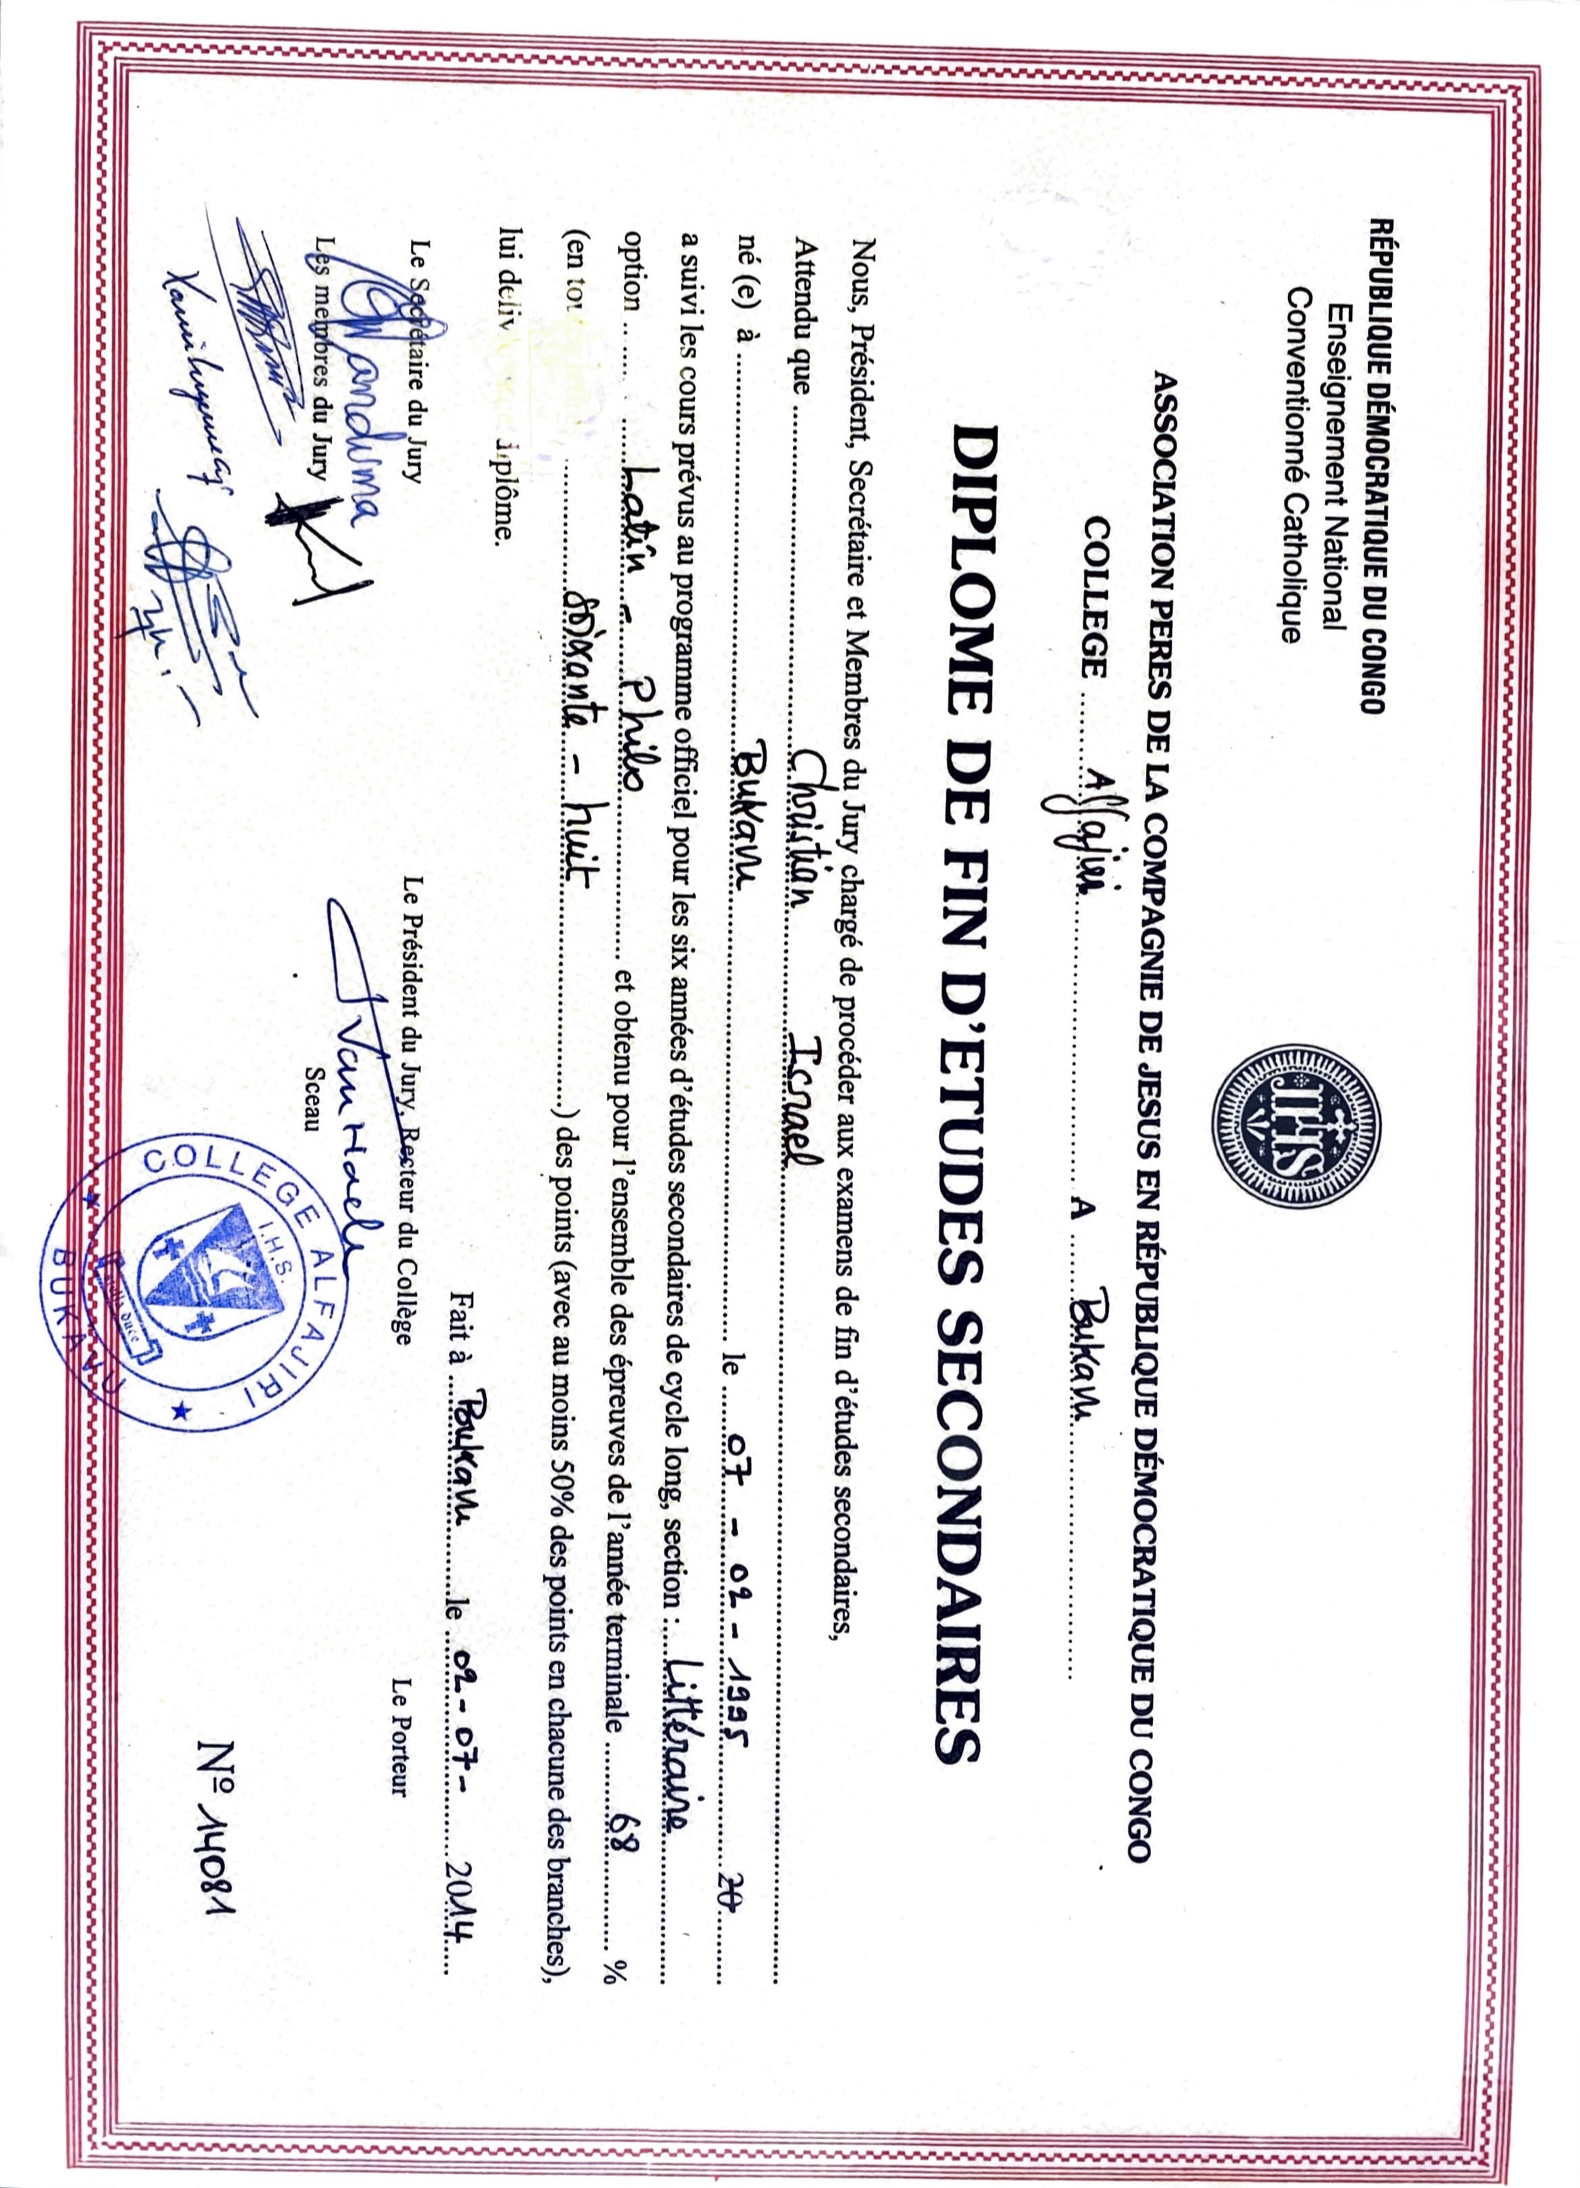 RÉPUBLIQUE DÉMOCRATIQUE DU CONGO
Enseignement National
Conventionné Catholique
IHS
ASSOCIATION PERES DE LA COMPAGNIE DE JESUS EN RÉPUBLIQUE DÉMOCRATIQUE DU CONGO
COLLEGE Alfajiri A Bukavu
DIPLOME DE FIN D'ETUDES SECONDAIRES
Nous, Président, Secrétaire et Membres du Jury chargé de procéder aux examens de fin d'études secondaires,
Attendu que Christian Israel
né (e) à Bukavu le 07-02-1995 20
a suivi les cours prévus au programme officiel pour les six années d'études secondaires de cycle long, section : Littéraire
option Latin - Philo et obtenu pour l'ensemble des épreuves de l'année terminale 68 %
(en tou soixante - huit ) des points (avec au moins 50% des points en chacune des branches),
lui deliv iplôme.
Fait à Bukavu le 02-07- 2014
Le Secrétaire du Jury Le Président du Jury, Recteur du Collège Le Porteur
Les membres du Jury
Sceau
COLLEGE ALFAJIRI
I.H.S.
BUKAVU
Nº 14081